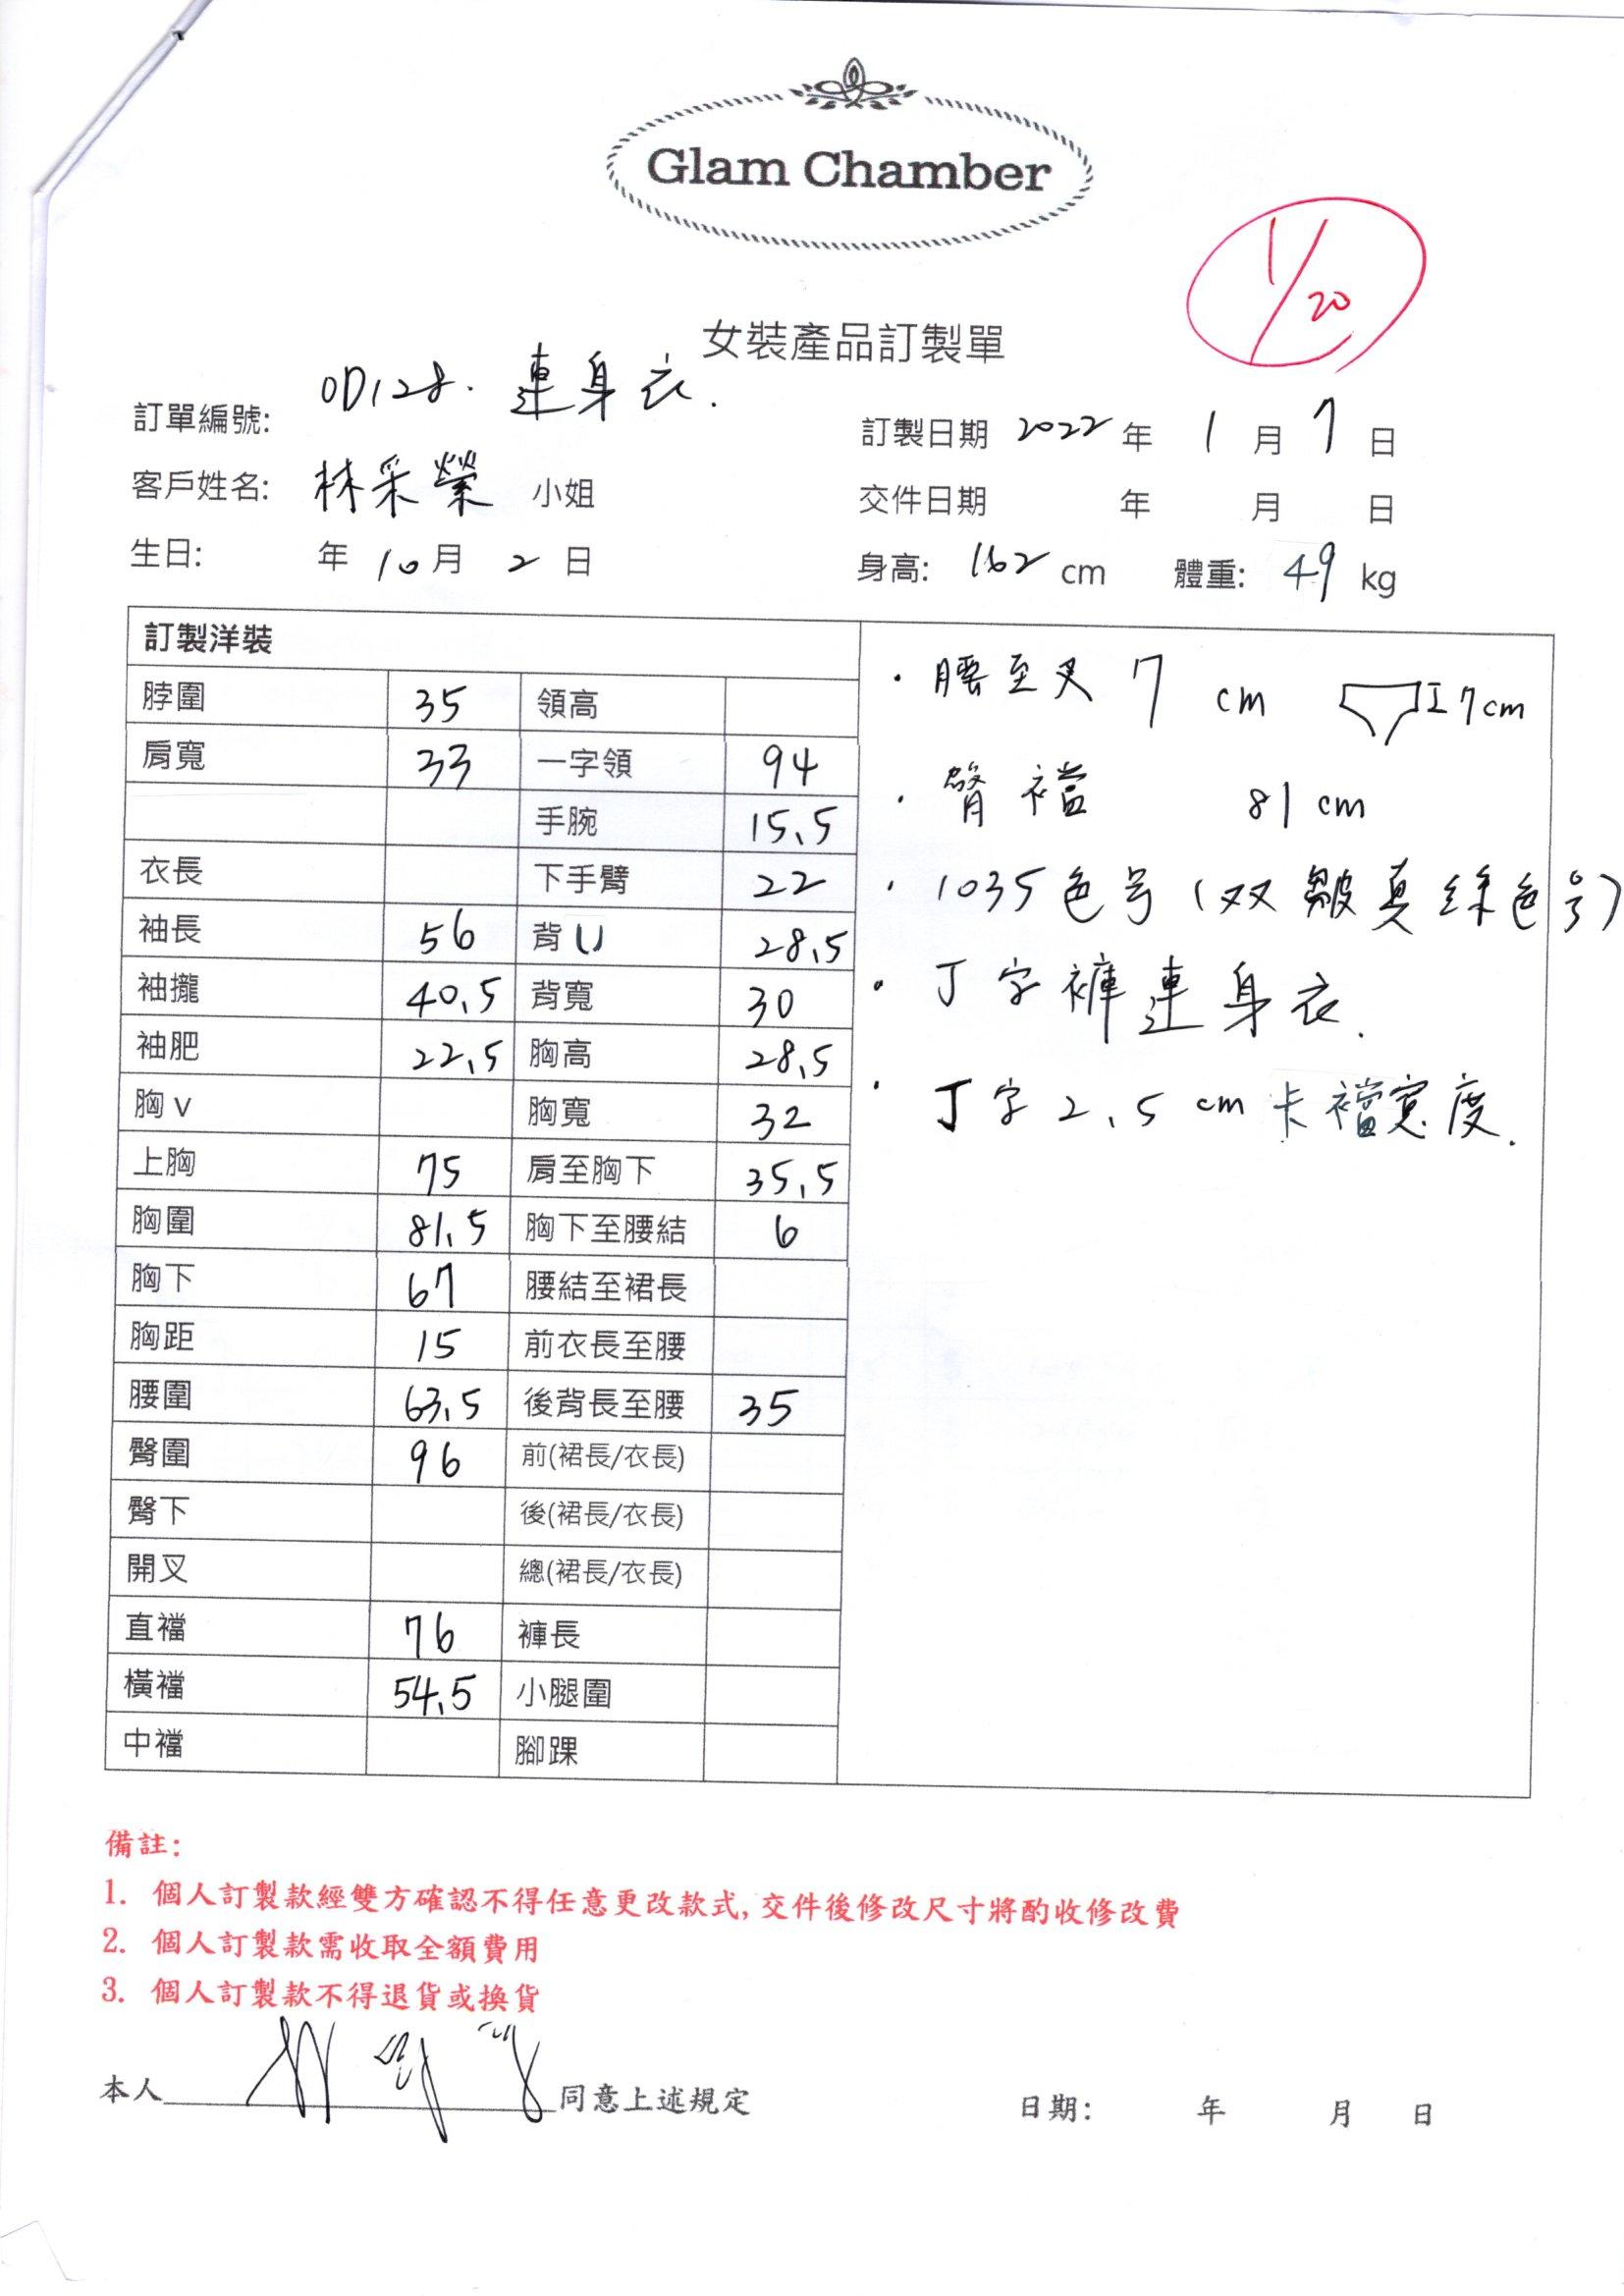 Glam Chamber
1/20
女裝產品訂製單
訂單編號: OD128. 連身衣.
訂製日期 2022 年 1 月 7 日
客戶姓名: 林采縈 小姐
交件日期 年 月 日
生日: 年 10 月 2 日
身高: 162 cm 體重: 49 kg
訂製洋裝
脖圍 35 領高
肩寬 33 一字領 94
手腕 15.5
衣長 下手臂 22
袖長 56 背U 28.5
袖攏 40.5 背寬 30
袖肥 22.5 胸高 28.5
胸v 胸寬 32
上胸 75 肩至胸下 35.5
胸圍 81.5 胸下至腰結 6
胸下 67 腰結至裙長
胸距 15 前衣長至腰
腰圍 63.5 後背長至腰 35
臀圍 96 前(裙長/衣長)
臀下 後(裙長/衣長)
開叉 總(裙長/衣長)
直襠 76 褲長
橫襠 54.5 小腿圍
中襠 腳踝
· 腰至叉 7 cm 7cm
· 臀襠 81 cm
· 1035色号(双皺真絲色号)
· 丁字褲連身衣.
· 丁字2.5cm卡襠寬度.
備註:
1. 個人訂製款經雙方確認不得任意更改款式,交件後修改尺寸將酌收修改費
2. 個人訂製款需收取全額費用
3. 個人訂製款不得退貨或換貨
本人 同意上述規定
日期: 年 月 日